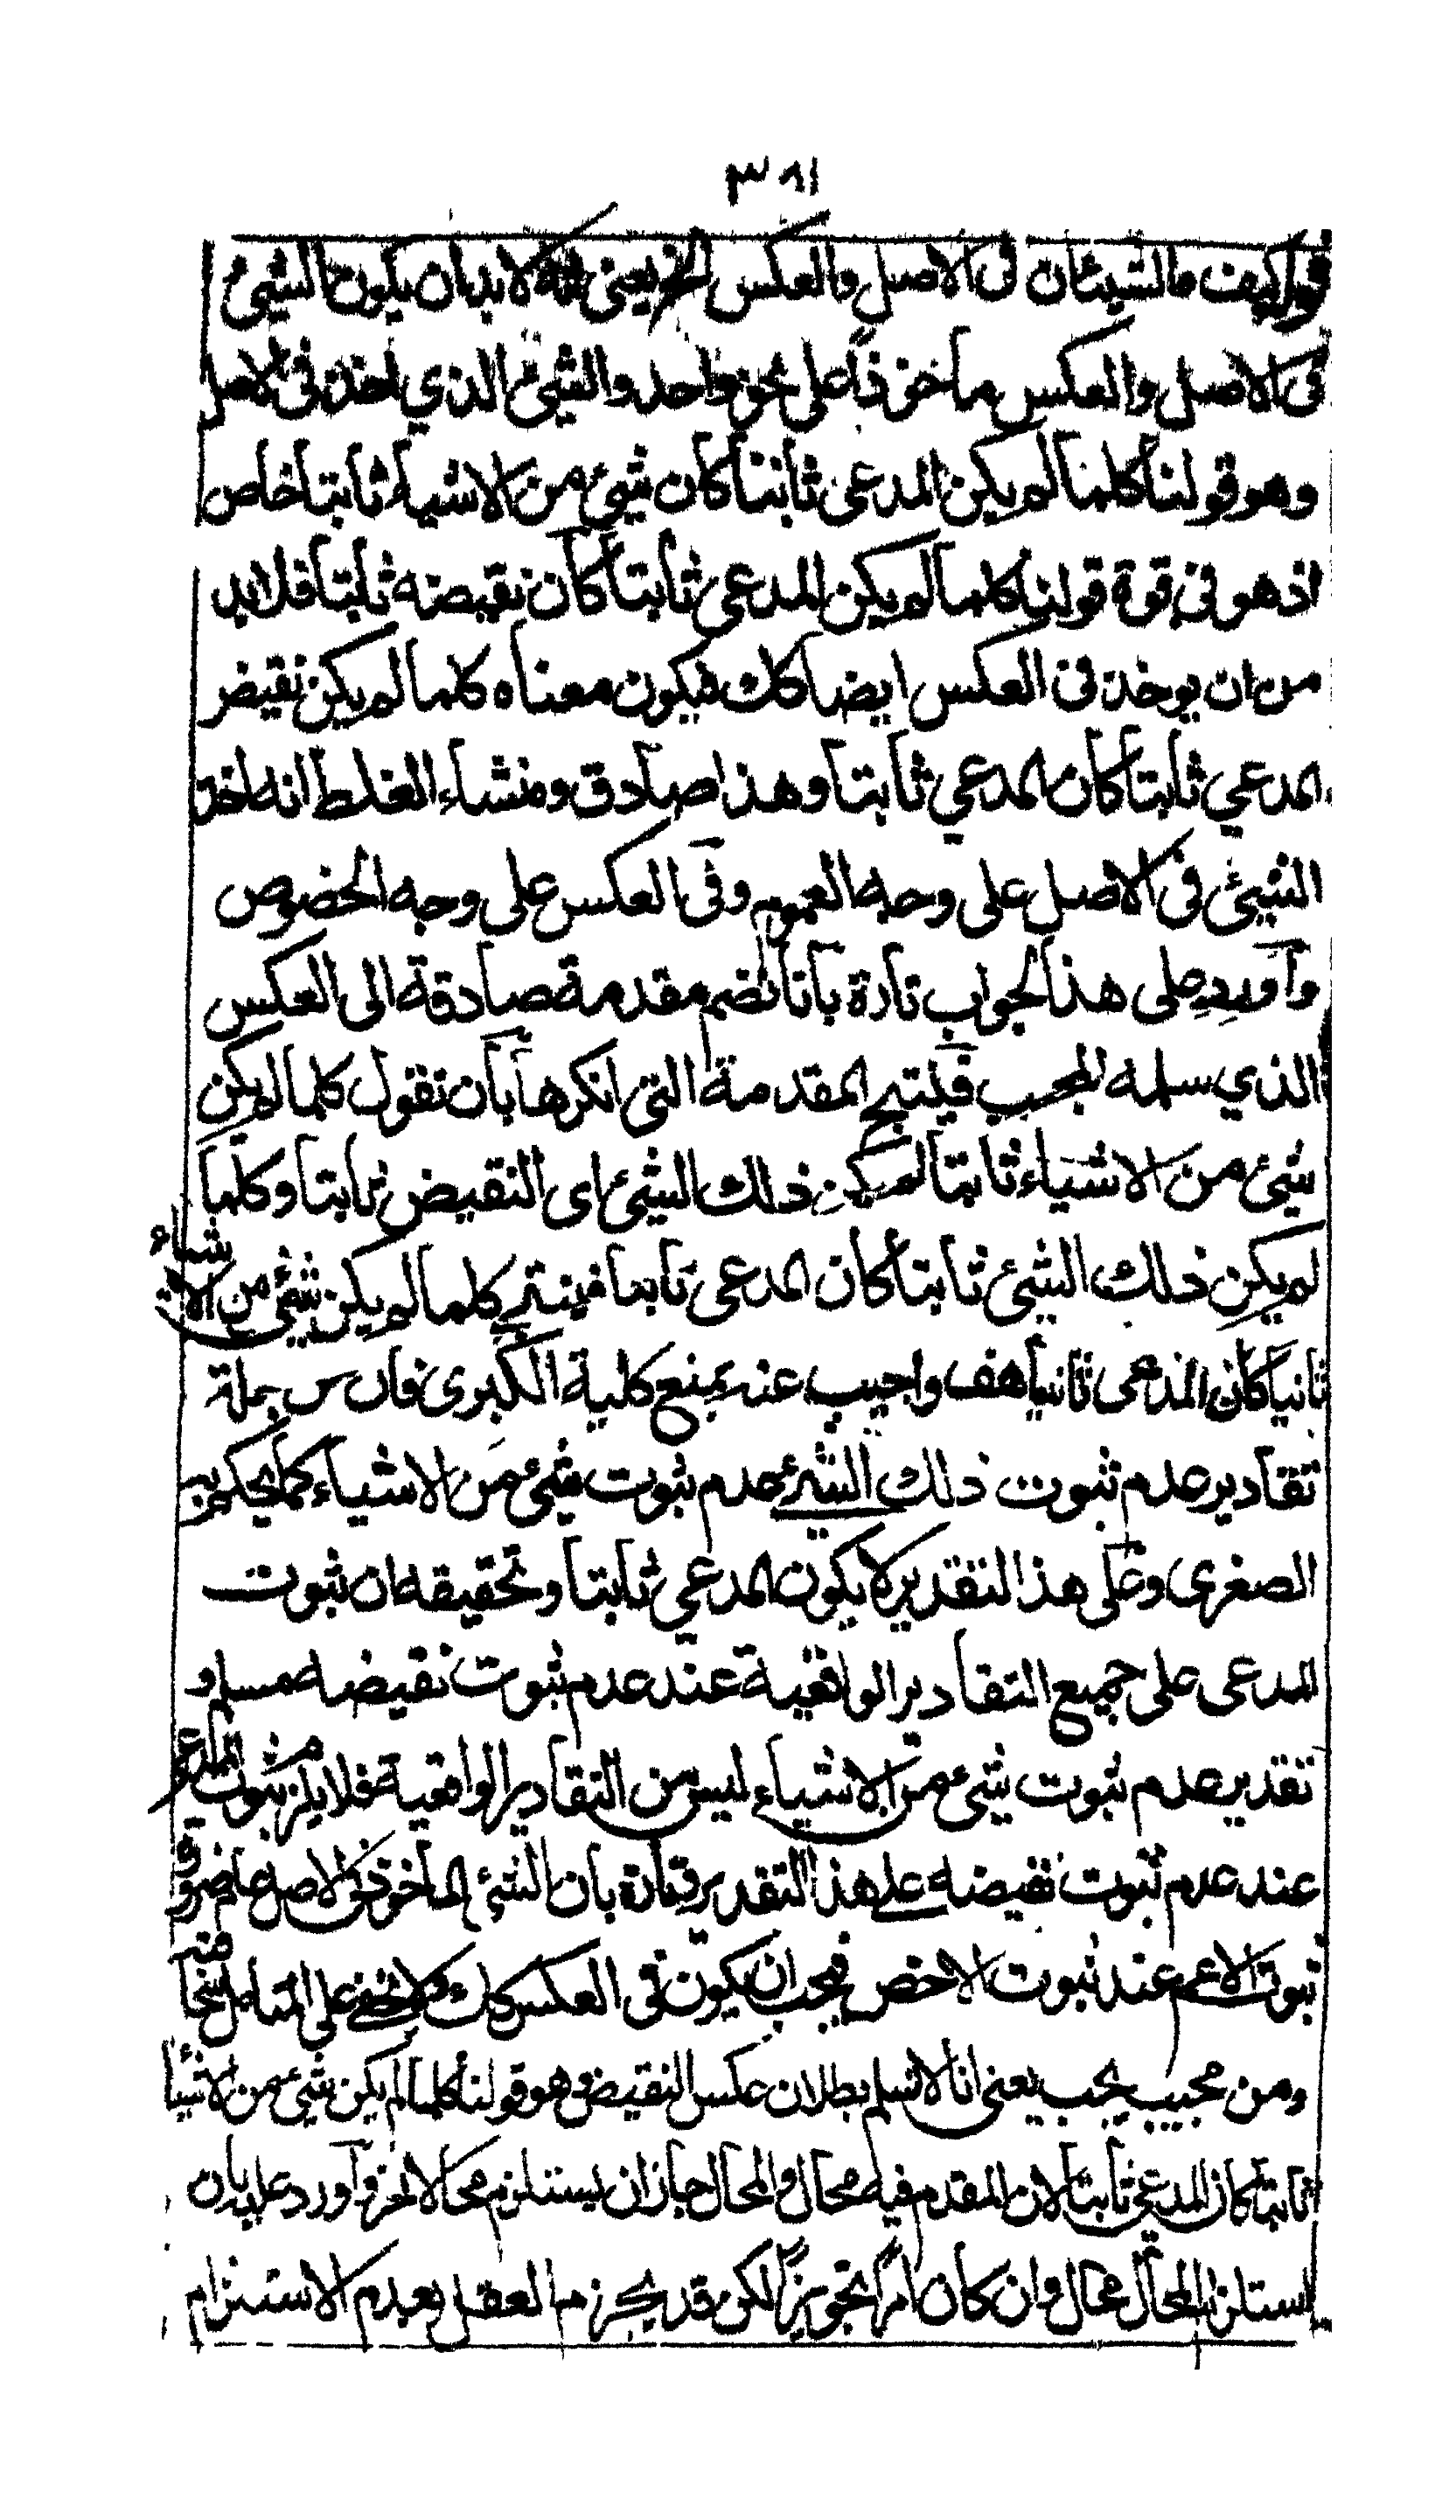 ٣٨١
قوله كيف فالشيئان في الاصل والعكس الخ يعني انه لابد ان يكون الشيئ
في الاصل والعكس ماخوذا على نحو واحد والشيئ الذي اخذ في الاصل
وهو قولنا كلما لم يكن المدعى ثابتا كان شيئ من الاشياء ثابتا خاص
اذ هو في قوة قولنا كلما لم يكن المدعى ثابتا كان نقيضه ثابتا فلابد
من ان يوخذ في العكس ايضا كك فيكون معناه كلما لم يكن نقيض
المدعي ثابتا كان المدعي ثابتا وهذا صادق ومنشاء الغلط انه اخذ
الشيئ في الاصل على وجه العموم وفي العكس على وجه الخصوص
واورد على هذا الجواب تارة بانا نضم مقدمة صادقة الى العكس
الذي سلمه المجيب فينتج المقدمة التي انكرها بان نقول كلما لم يكن
شيئ من الاشياء ثابتا لم يكن ذلك الشيئ اى النقيض ثابتا وكلما
لم يكن ذلك الشيئ ثابتا كان المدعى ثابتا فينتج كلما لم يكن شيئ من الاشياء
ثابتا كان المدعى ثابتا هف واجيب عنه بمنع كلية الكبرى فان من جملة
تقادير عدم ثبوت ذلك الشيئ عدم ثبوت شيئ من الاشياء كما يحكم به
الصغرى وعلى هذا التقدير لا يكون المدعي ثابتا وتحقيقه ان ثبوت
المدعى على جميع التقادير الواقعية عند عدم ثبوت نقيضه مسلم و
تقدير عدم ثبوت شيئ من الاشياء ليس من التقادير الواقعية فلا يلزم ثبوت المدعى
عند عدم ثبوت نقيضه على هذا التقدير وتارة بان الشيئ الماخوذ في الاصل عام ضرورة
ثبوت الاعم عند ثبوت الاخص فيجب ان يكون في العكس كك ولا يخفى على المتامل سخافته
ومن مجيب يجيب يعني انا لا نسلم بطلان عكس النقيض وهو قولنا كلما لم يكن شيئ من الاشياء
ثابتا كان المدعي ثابتا لان المقدم فيه محال والمحال جاز ان يستلزم محالا اخر واورد عليه بان
استلزام المحال محال وان كان امرا تجويزيا لكن قد يجزم العقل بعدم الاستلزام